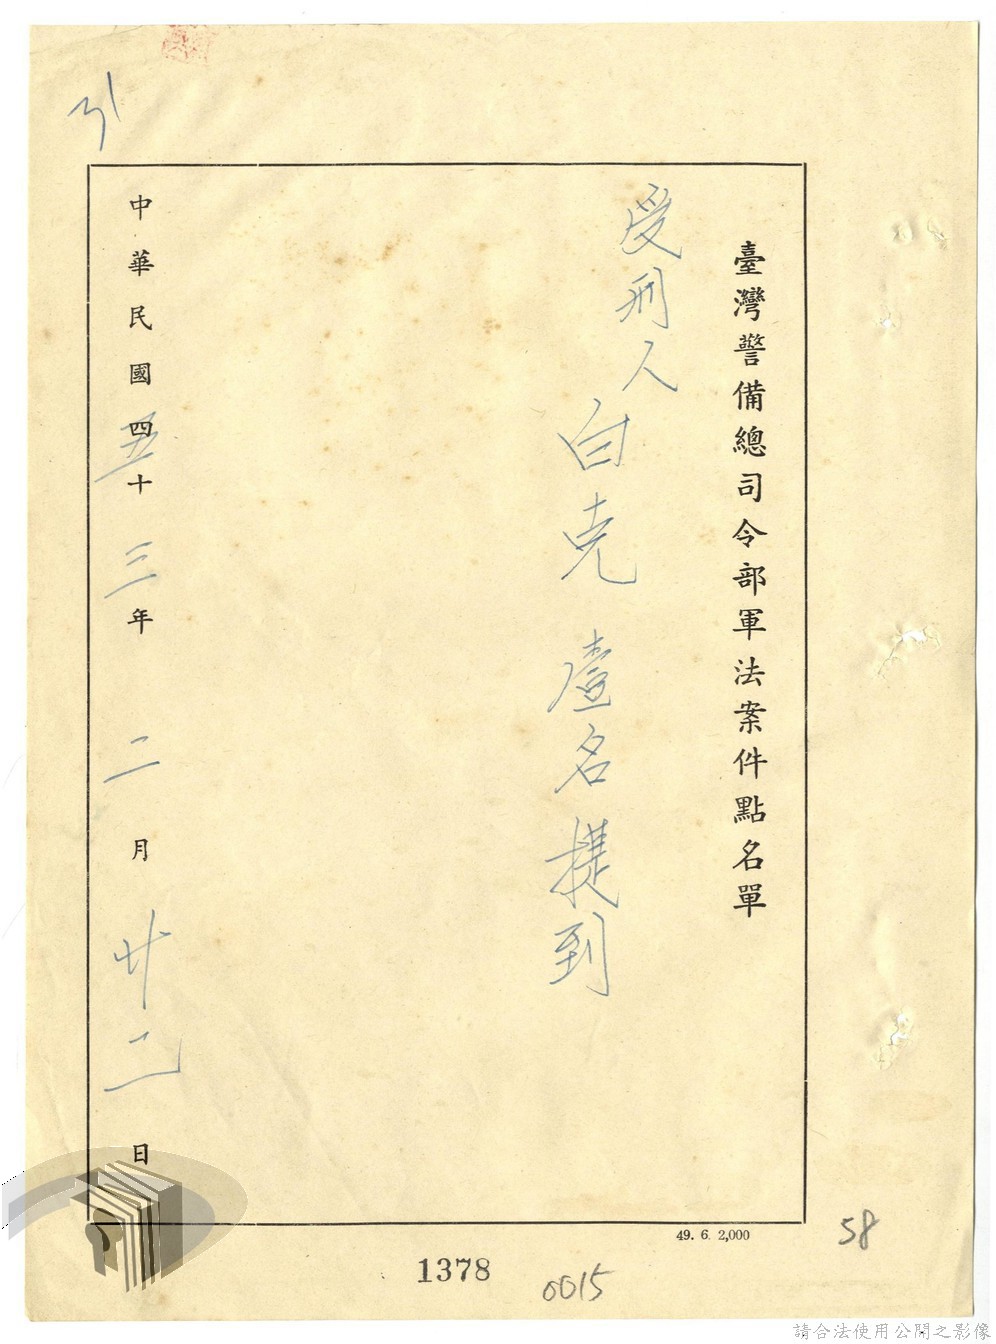 臺灣警備總司令部軍法案件點名單
受刑人
白克 壹名提到
中華民國五十三年二月廿二日
49. 6. 2,000
1378
0015
58
31
請合法使用公開之影像